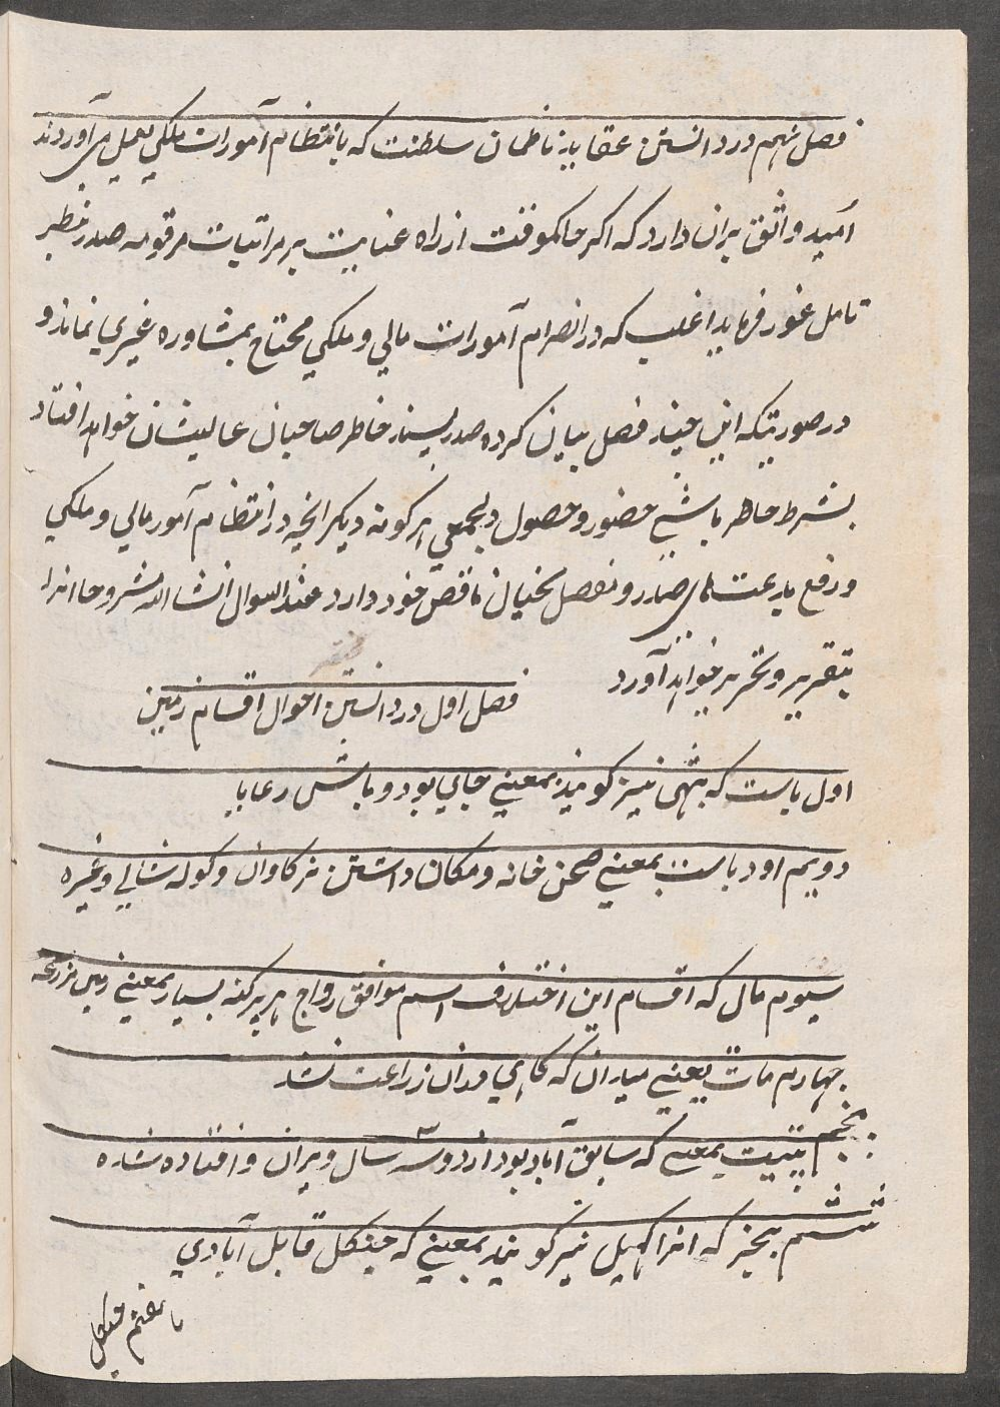 فصل نهم در دانستن عقاید ناظمان سلطنت که بانتظام آمورات ملکی بعمل می آوردند
امید واثق بران دارد که اکر حاکموقت از راه عنایت بر مراتبات مرقومه صدر بنظر
تامل غور فرماید اغلب که در انصرام آمورات مالی و ملکی محتاج بمشاوره غیری نماند و
در صورتیکه این چند فصل بیان کرده صدر پسند خاطر صاحبان عالیشان خواهد افتاد
بشرط حاضر باشی حضور و حصول دلجمعی هر کونه دیکر انچه در انتظام آمور مالی و ملکی
و رفع بدعت های ضار و مفصل بخیال ناقص خود دارد عند السوال انشا الله مشروحا انرا
بتقریر و تحریر خواهد آورد
فصل اول در دانستن احوال اقسام زمین
اول باست که بتهی نیز کویند بمعنی جای بود و باش رعایا
دویم اودباست بمعنی صحن خانه و مکان داشتن نر کاوان و کوله شالی وغیره
سیوم مال که اقسام این اختلاف اسم موافق رواج هر پرکنه بسیار بمعنی زمین مزروعه
چهارم مات یعنی میدان که کاهی دران زراعت نشد
پنجم پتیت بمعنی که سابق آباد بود از دو سه سال ویران و افتاده شده
ششم بنجر که انرا کهیل نیز کویند بمعنی که جنکل قابل آبادی
هفتم جنکل